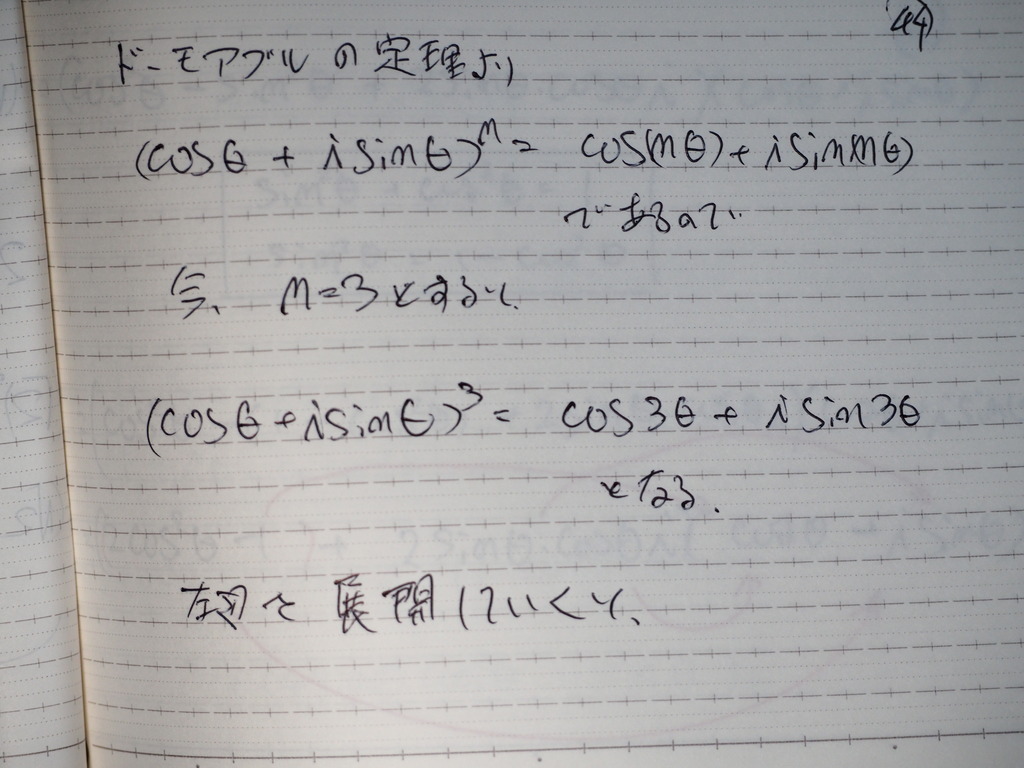 44
ド・モアブルの定理より
(cosθ + i sinθ)ⁿ = cos(nθ) + i sin(nθ)
であるので、
今、n=3とすると、
(cosθ + i sinθ)³ = cos3θ + i sin3θ
となる.
左辺を展開していくと、